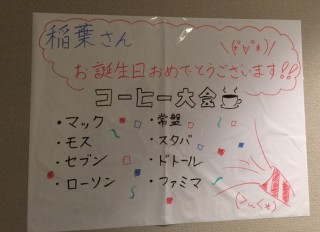 稲葉さん
\(*°∀°*)/
お誕生日おめでとうございます!!
コーヒー大会
・マック
・モス
・セブン
・ローソン
・常盤
・スタバ
・ドトール
・ファミマ